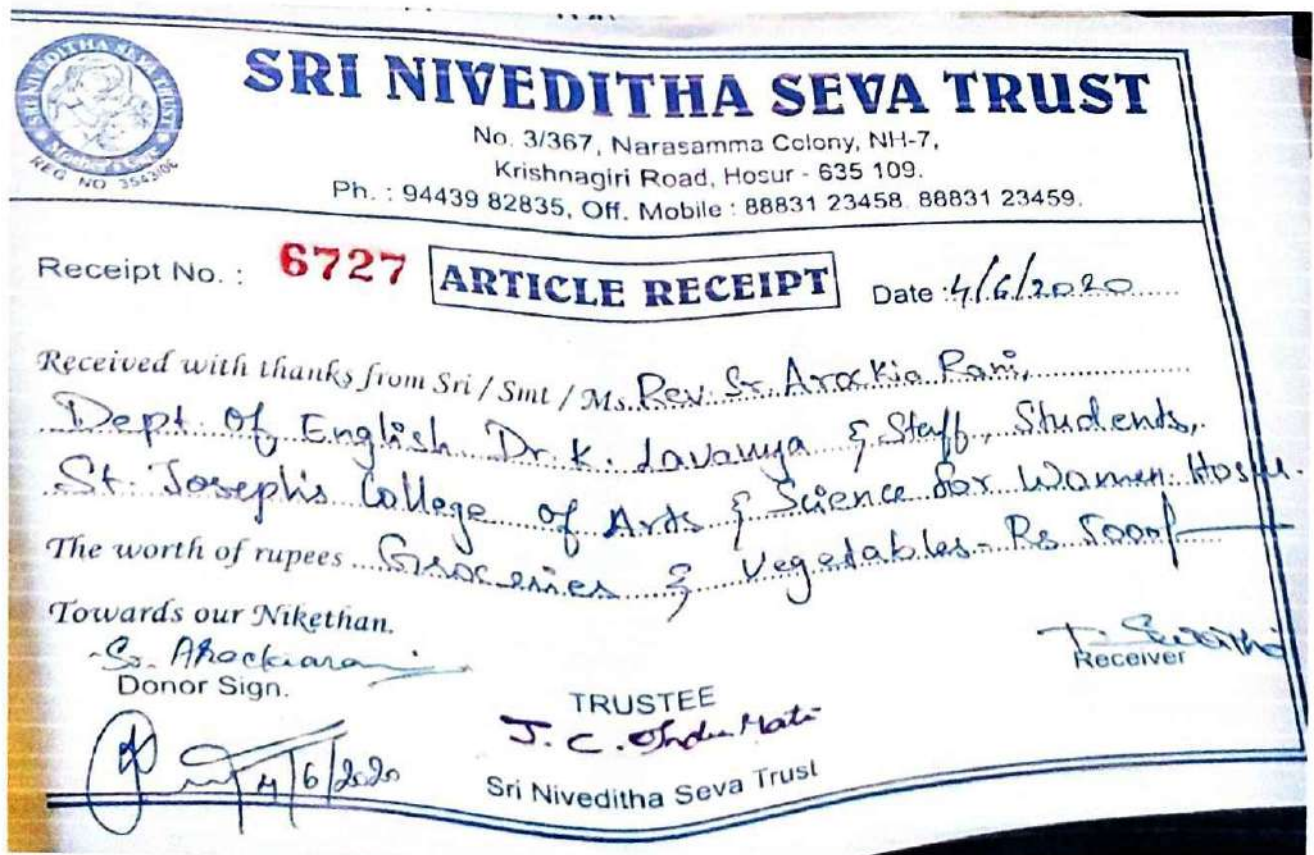 SRI NIVEDITHA SEVA TRUST
Mother's Care
REG NO 3543/06
SRI NIVEDITHA SEVA TRUST
No. 3/367, Narasamma Colony, NH-7,
Krishnagiri Road, Hosur - 635 109.
Ph. : 94439 82835, Off. Mobile : 88831 23458. 88831 23459.
Receipt No. : 6727 ARTICLE RECEIPT Date : 4/6/2020
Received with thanks from Sri / Smt / Ms. Rev. Sr. Arockia Rani,
Dept. of English Dr. K. Lavanya & Staff, Students,
St. Joseph's College of Arts & Science for Women. Hosur.
The worth of rupees Groceries & Vegetables - Rs 5000/-
Towards our Nikethan.
Sr. Arockiarani
Donor Sign.
Receiver
TRUSTEE
J. C. Indu Mati
4/6/2020
Sri Niveditha Seva Trust